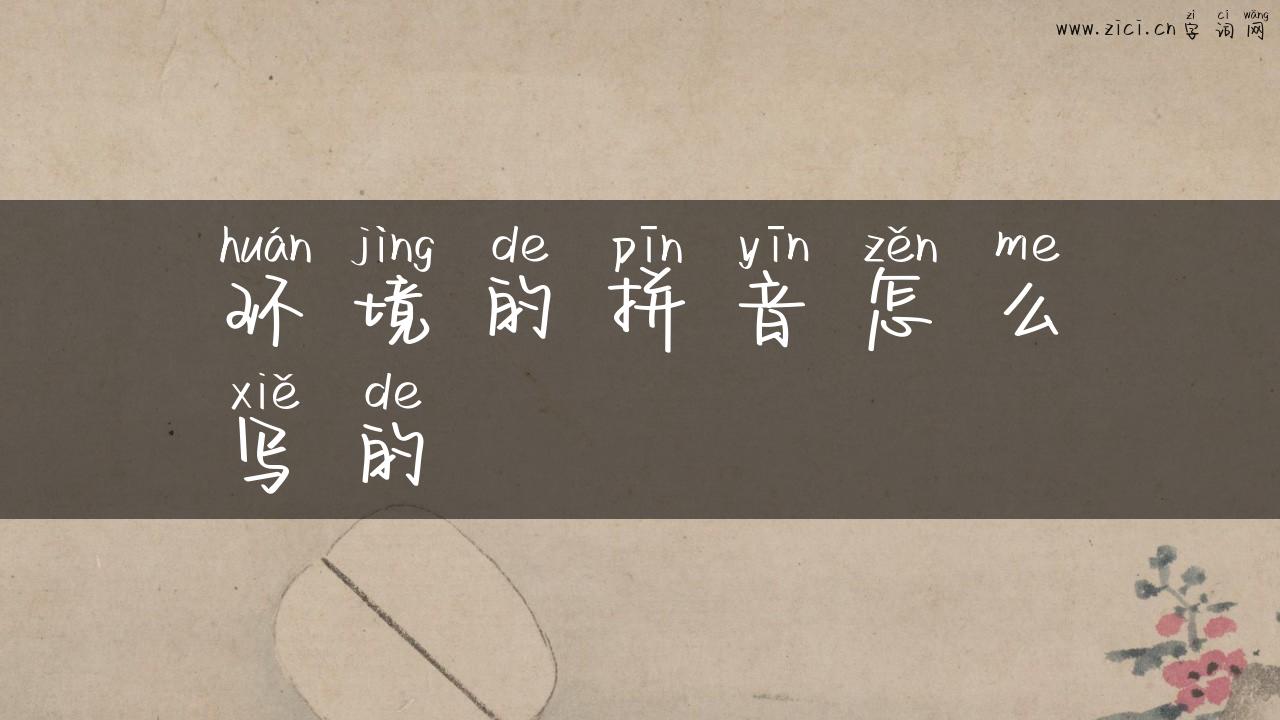 zì cí wǎng
www.zici.cn 字词网
huán jìng de pīn yīn zěn me
环境的拼音怎么
xiě de
写的